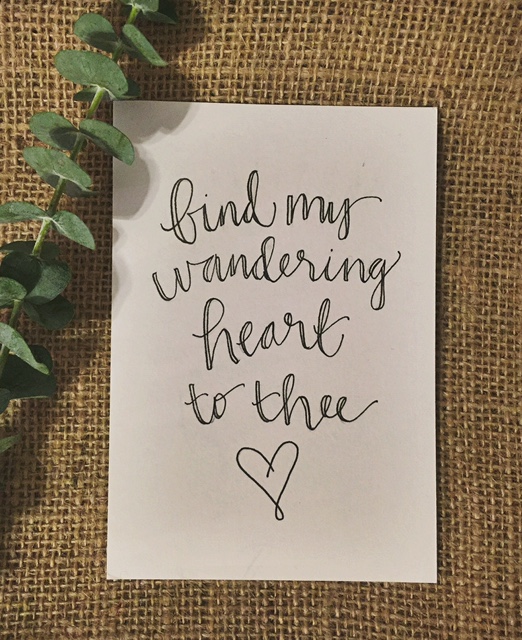 bind my
wandering
heart
to thee